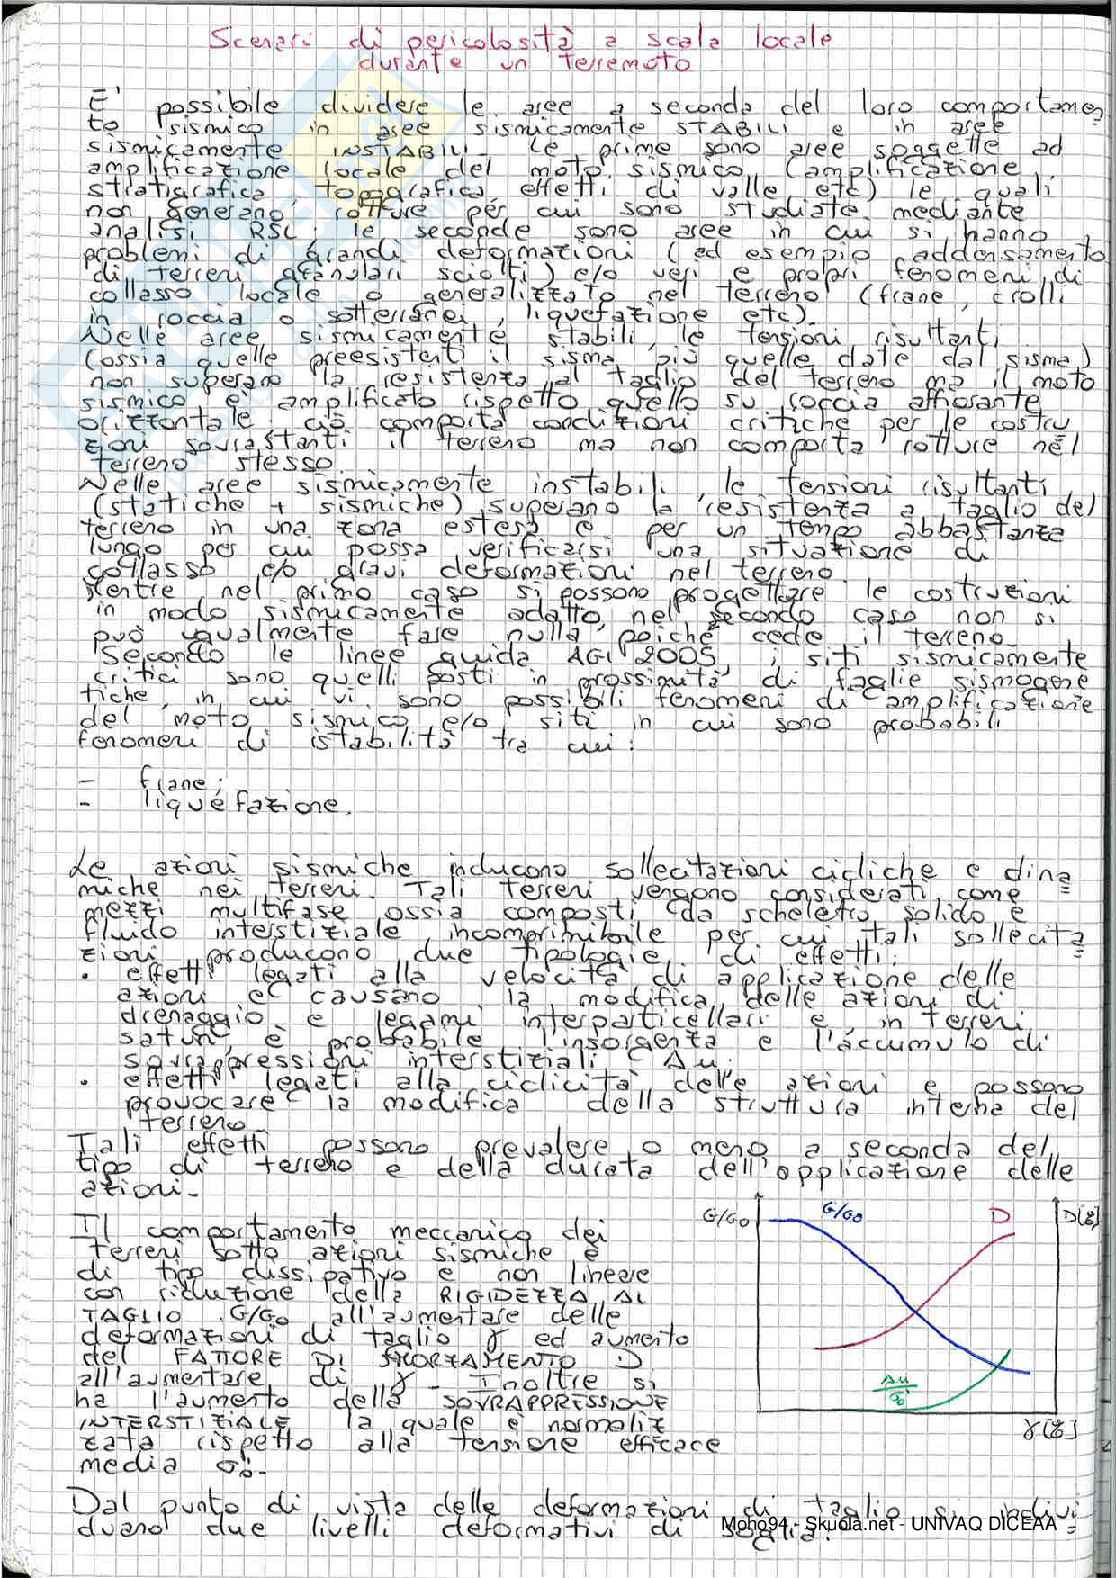 Scenari di pericolosità a scala locale
durante un terremoto
E' possibile dividere le aree a seconda del loro comportamen
to sismico in aree sismicamente STABILI e in aree
sismicamente INSTABILI. Le prime sono aree soggette ad
amplificazione locale del moto sismico (amplificazione
stratigrafica, topografica, effetti di valle etc) le quali
non generano rotture per cui sono studiate mediante
analisi RSL; le seconde sono aree in cui si hanno
problemi di grandi deformazioni (ad esempio addensamento
di terreni granulari sciolti) e/o veri e propri fenomeni di
collasso locale o generalizzato nel terreno (frane, crolli
in roccia o sotterranei, liquefazione etc).
Nelle aree sismicamente stabili, le tensioni risultanti
(ossia quelle preesistenti il sisma più quelle date dal sisma)
non superano la resistenza al taglio del terreno ma il moto
sismico è amplificato rispetto quello su roccia affiorante
orizzontale ciò comporta condizioni critiche per le costru
zioni sovrastanti il terreno ma non comporta rotture nel
terreno stesso.
Nelle aree sismicamente instabili, le tensioni risultanti
(statiche + sismiche) superano la resistenza a taglio del
terreno in una zona estesa e per un tempo abbastanza
lungo per cui possa verificarsi una situazione di
collasso e/o gravi deformazioni nel terreno
Mentre nel primo caso si possono progettare le costruzioni
in modo sismicamente adatto, nel secondo caso non si
può ugualmente fare nulla poiché cede il terreno
Secondo le linee guida AGI 2005, i siti sismicamente
critici sono quelli posti in prossimità di faglie sismogene
tiche, in cui vi sono possibili fenomeni di amplificazione
del moto sismico e/o siti in cui sono probabili
fenomeni di istabilità tra cui:
- frane;
- liquefazione.
Le azioni sismiche inducono sollecitazioni cicliche e dina
miche nei terreni. Tali terreni vengono considerati come
mezzi multifase ossia composti da scheletro solido e
fluido interstiziale incomprimibile per cui tali sollecita
zioni producono due tipologie di effetti:
• effetti legati alla velocità di applicazione delle
azioni e causano la modifica delle azioni di
drenaggio e legami interparticellari e, in terreni
saturi, è probabile l'insorgenza e l'accumulo di
sovrappressioni interstiziali Δu;
• effetti legati alla ciclicità delle azioni e possono
provocare la modifica della struttura interna del
terreno.
Tali effetti possono prevalere o meno a seconda del
tipo di terreno e della durata dell'applicazione delle
azioni.
Il comportamento meccanico dei
terreni sotto azioni sismiche è
di tipo dissipativo e non lineare
con riduzione della RIGIDEZZA AL
TAGLIO G/G0 all'aumentare delle
deformazioni di taglio γ ed aumento
del FATTORE DI SMORZAMENTO D
all'aumentare di γ. Inoltre si
ha l'aumento della SOVRAPPRESSIONE
INTERSTIZIALE la quale è normaliz
zata rispetto alla tensione efficace
media σ'0.
G/G0
G/G0
D
D[%]
Δu/σ'0
γ[%]
Dal punto di vista delle deformazioni di taglio si indivi
duano due livelli deformativi di soglia:
Moho94 - Skuola.net - UNIVAQ DICEAA